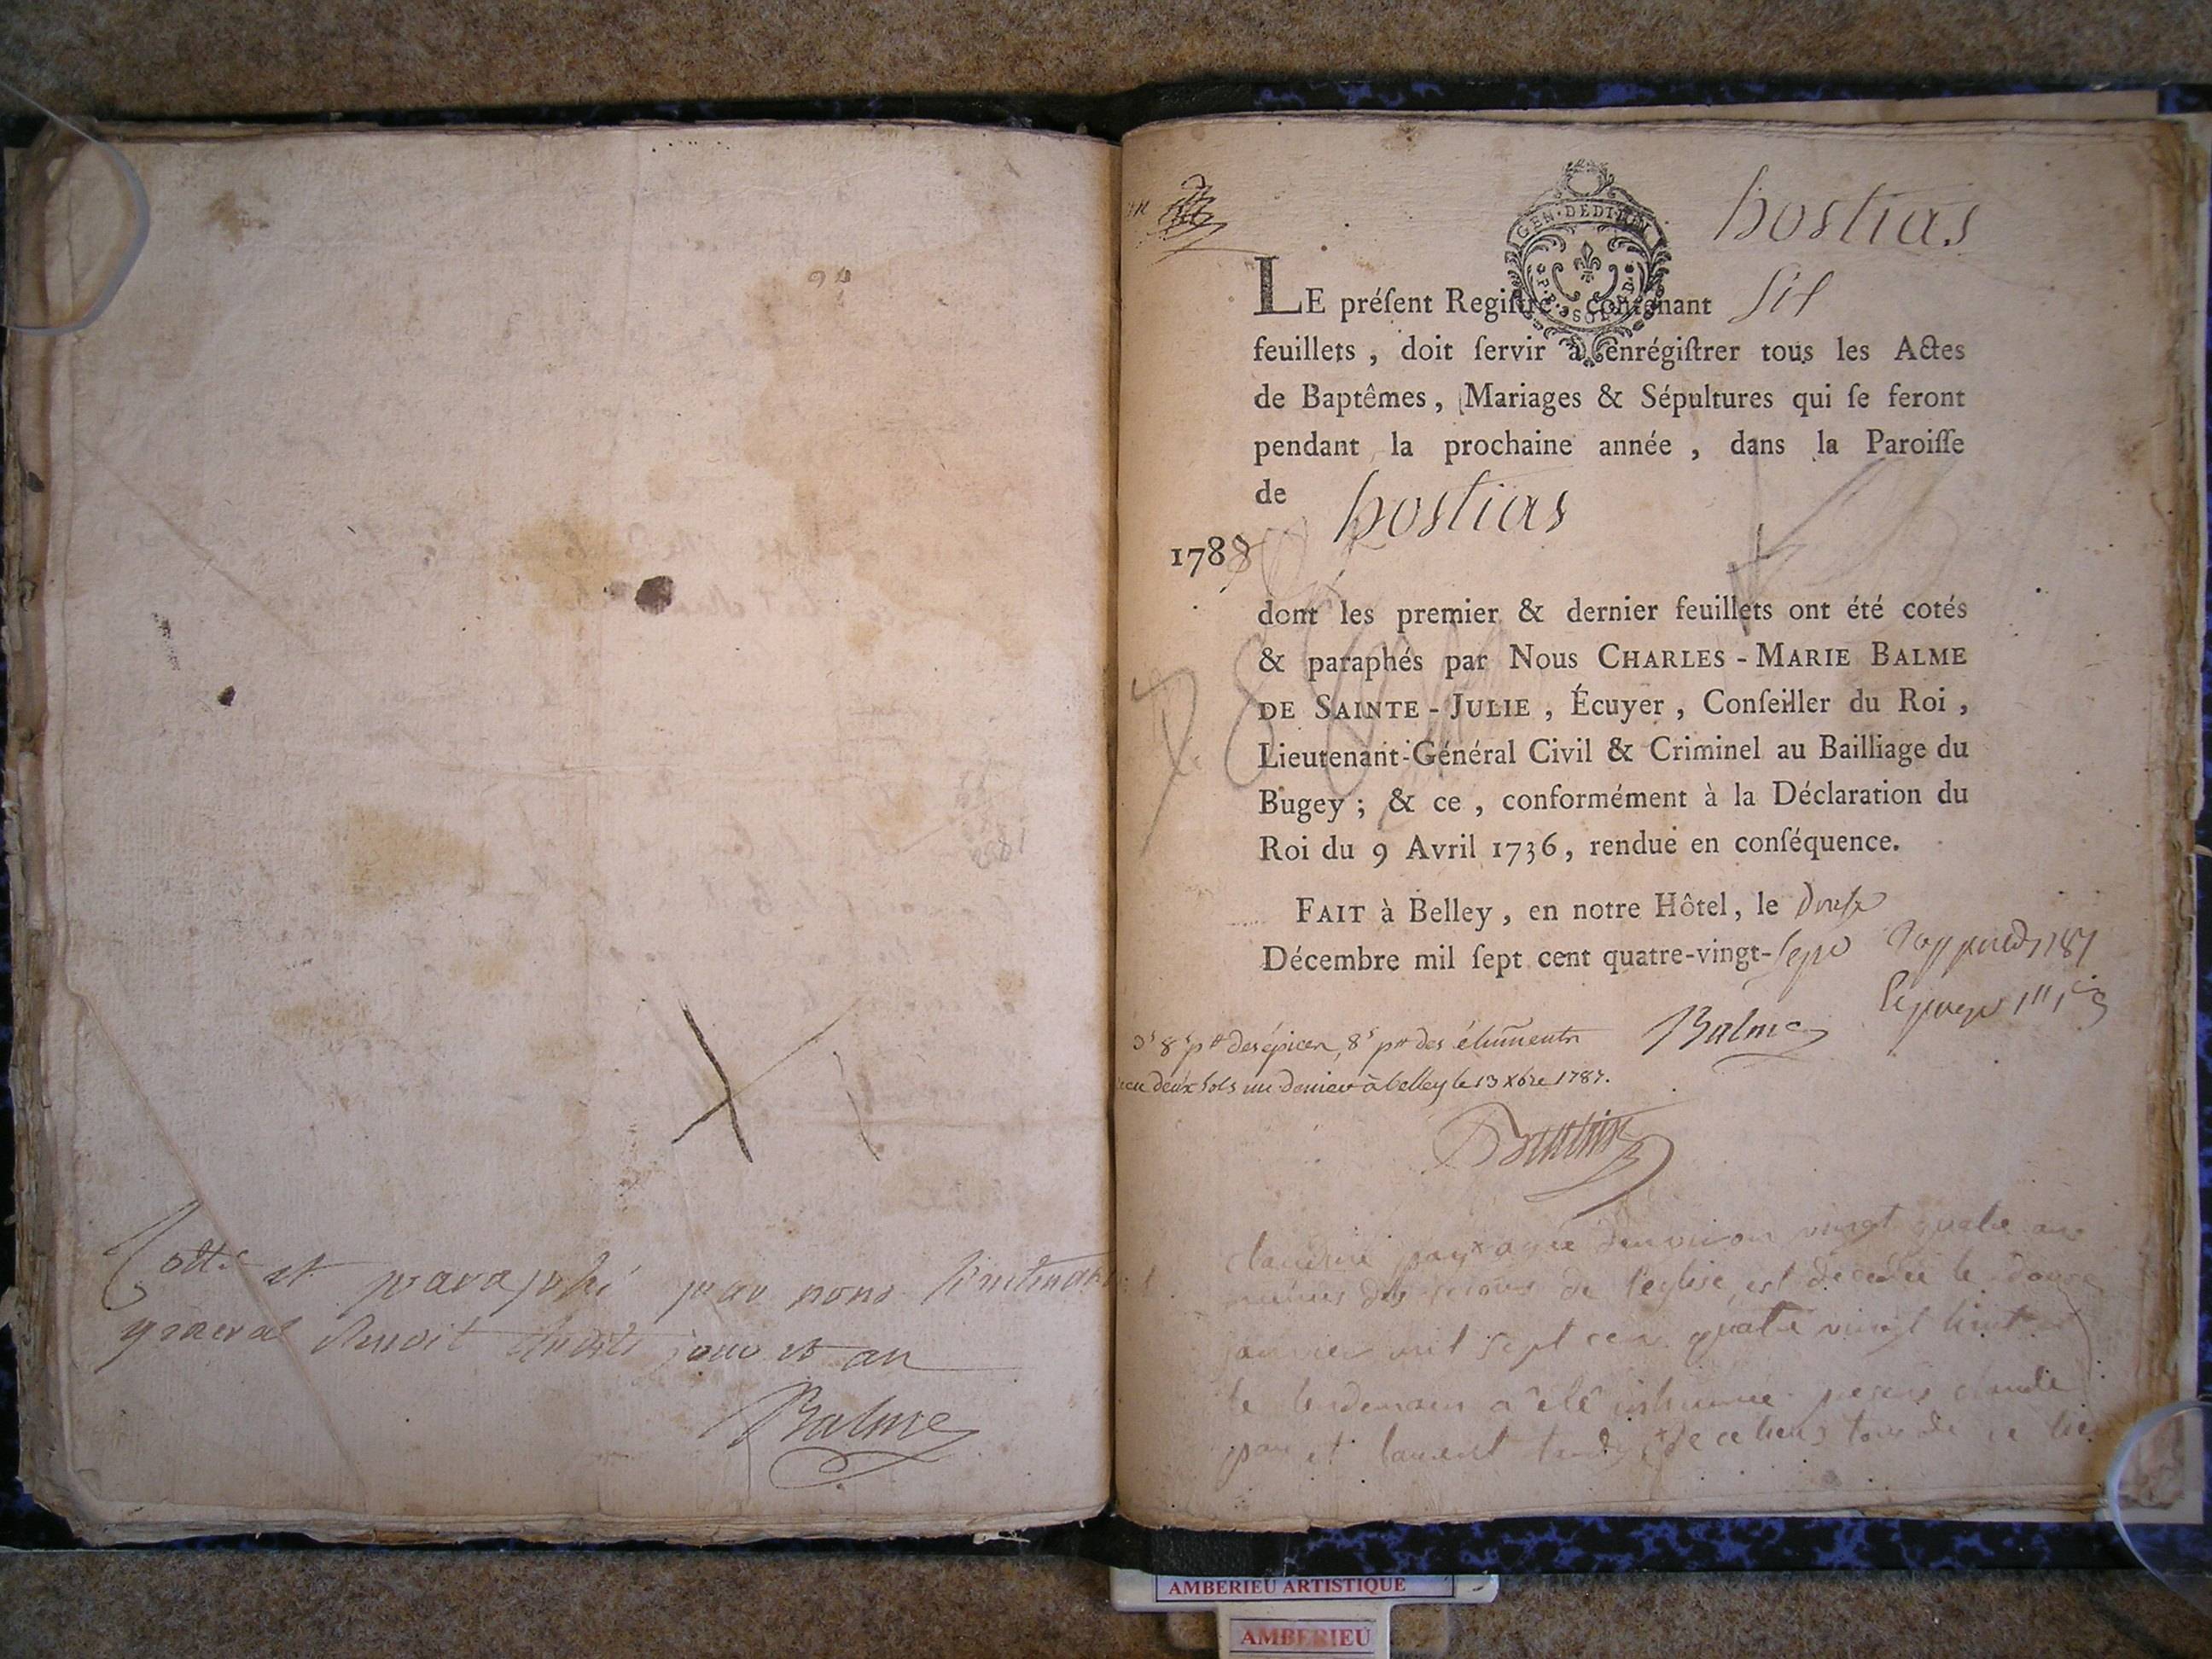 Cotté et paraphé par nous lieutenant
general susdit jour et an
Balme
hostias
GEN·DE DIJON
LE préſent Regiſtre contenant six
feuillets , doit ſervir à enrégiſtrer tous les Actes
de Baptêmes , Mariages & Sépultures qui ſe feront
pendant la prochaine année , dans la Paroiſſe
de hostias
1788
dont les premier & dernier feuillets ont été cotés
& paraphés par Nous CHARLES-MARIE BALME
DE SAINTE-JULIE , Écuyer , Conſeiller du Roi ,
Lieutenant-Général Civil & Criminel au Bailliage du
Bugey ; & ce , conformément à la Déclaration du
Roi du 9 Avril 1736, rendue en conſéquence.
FAIT à Belley , en notre Hôtel, le douse
Décembre mil ſept cent quatre-vingt-sept
Balme
8ˢ pʳ des épices, 8ˢ pʳ des
deux sols un denier à belley le 13 xbre 1787.
claudine pay agée d'environ vingt quatre ans
munies des de l'eglise, est decedée le douze
janvier mil sept cen quatre vingt huit
le lendemain a êtê inhumée presens claude
pay et laurent tous de ce lie
AMBERIEU ARTISTIQUE
AMBERIEU